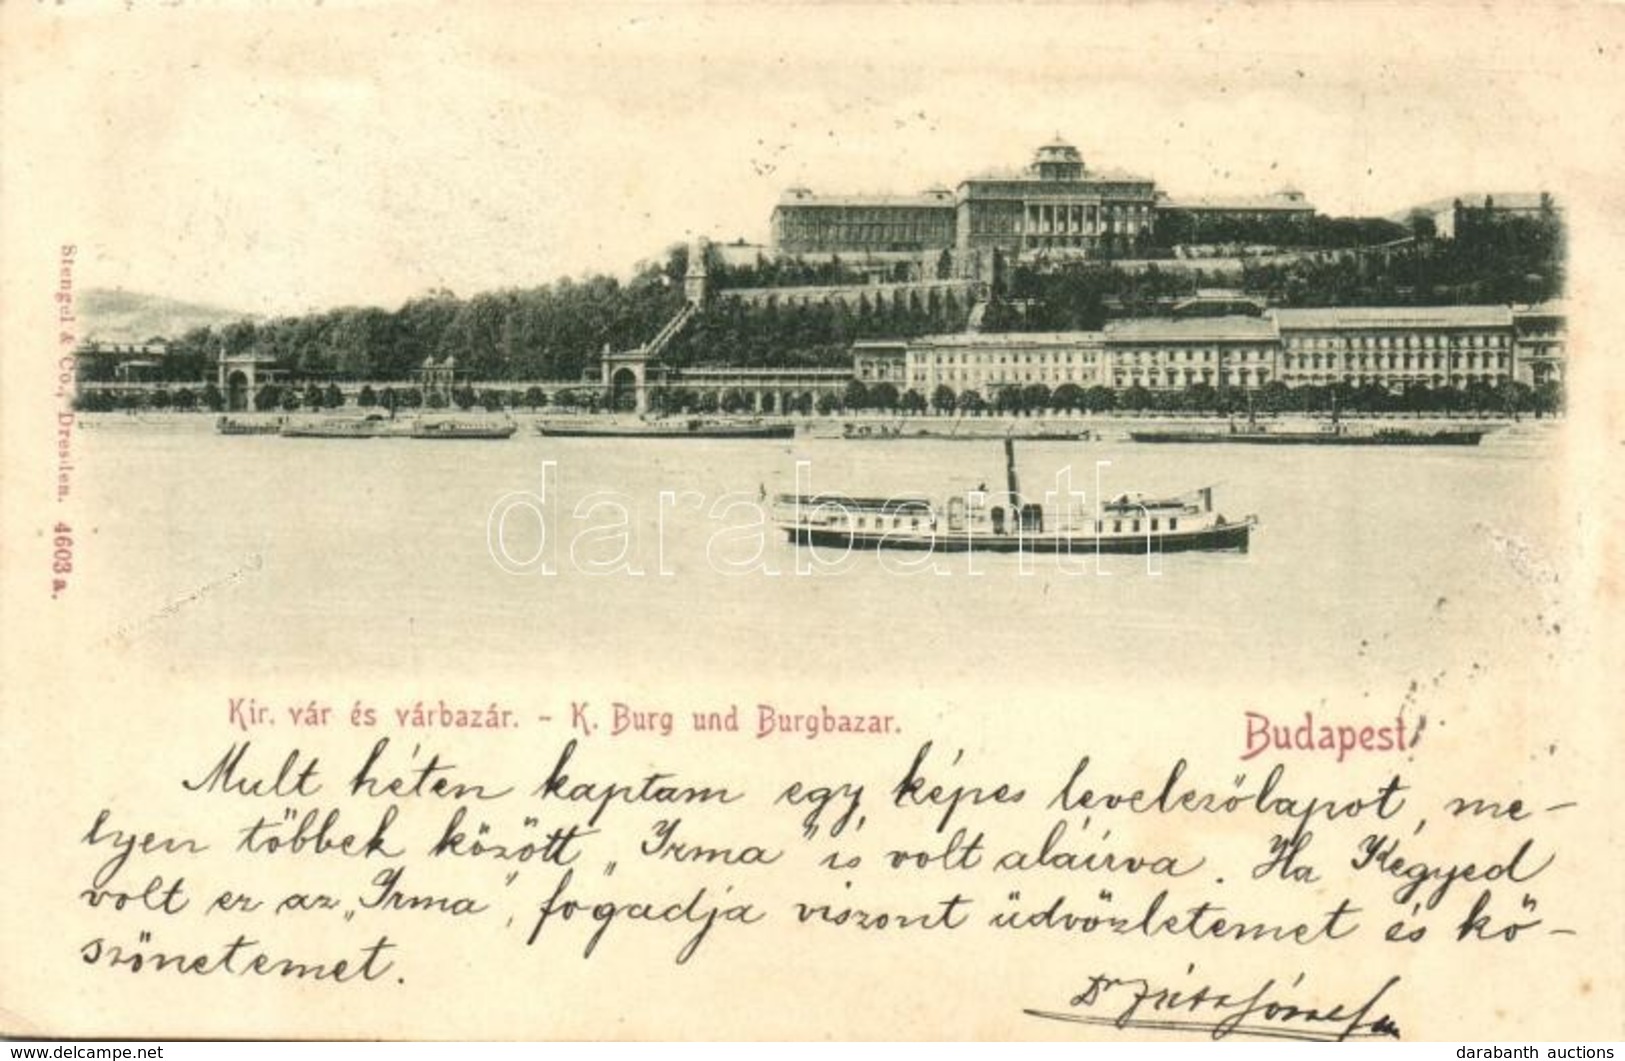 Stengel & Co., Dresden. 4603 a.
darabanth
Kir. vár és várbazár. - K. Burg und Burgbazar.
Budapest.
Mult héten kaptam egy képes levelezőlapot, me-
lyen többek között „Irma" is volt aláirva. Ha Kegyed
volt ez az „Irma", fogadja viszont üdvözletemet és kö-
szönetemet.
Dr József
www.delcampe.net
darabanth auctions